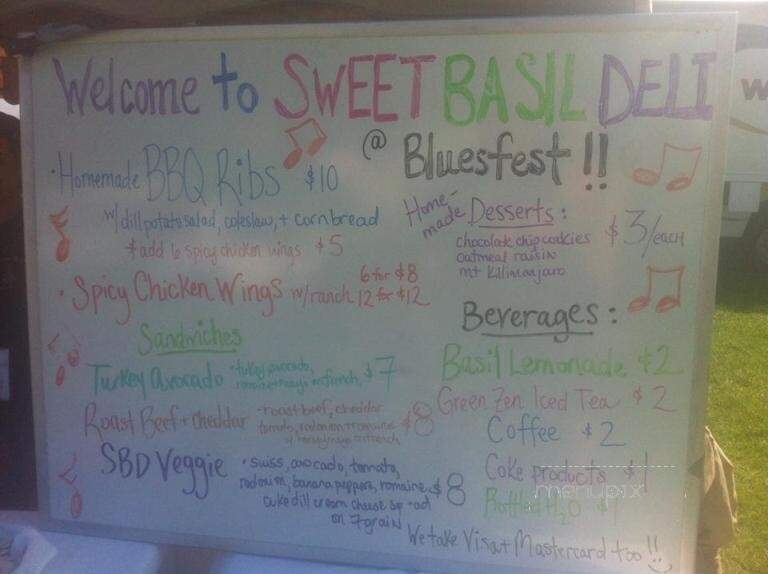 Welcome to SWEET BASIL DELI
@ Bluesfest !!
• Homemade BBQ Ribs $10
w/ dill potato salad, coleslaw, + cornbread
* add 6 spicy chicken wings $5
• Spicy Chicken Wings w/ranch 6 for $8
12 for $12
Sandwiches
Turkey Avocado • turkey, avocado, $7
Roast Beef + Cheddar • roast beef, cheddar $8
tomato, red onion + romaine
SBD Veggie • swiss, avocado, tomato, $8
red onion, banana peppers, romaine
cuke dill cream cheese
on 7 grain
Home-made Desserts : $3/each
chocolate chip cookies
oatmeal raisin
mt Kilimanjaro
Beverages :
Basil Lemonade $2
Green Zen Iced Tea $2
Coffee $2
Coke products $1
Bottled H2O $1
We take Visa + Mastercard too !!
menupix
W